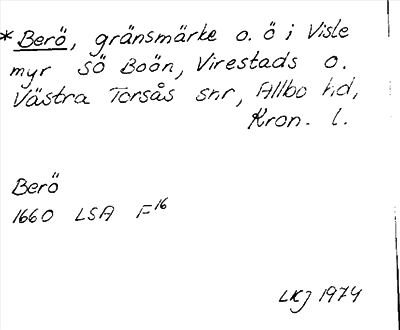 *Berö, gränsmärke o. ö i Visle
myr SÖ Boön, Virestads o.
Västra Torsås snr, Allbo hd,
Kron. l.
Berö
1660 LSA F16
LKJ 1974